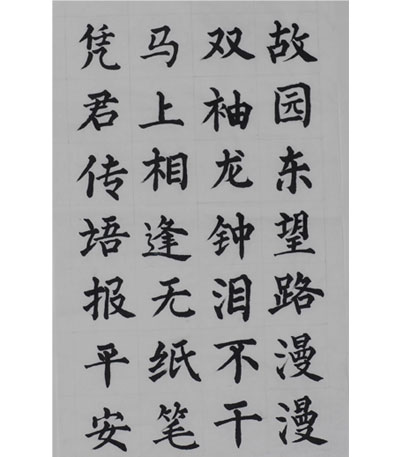 故园东望路漫漫
双袖龙钟泪不干
马上相逢无纸笔
凭君传塔报平安